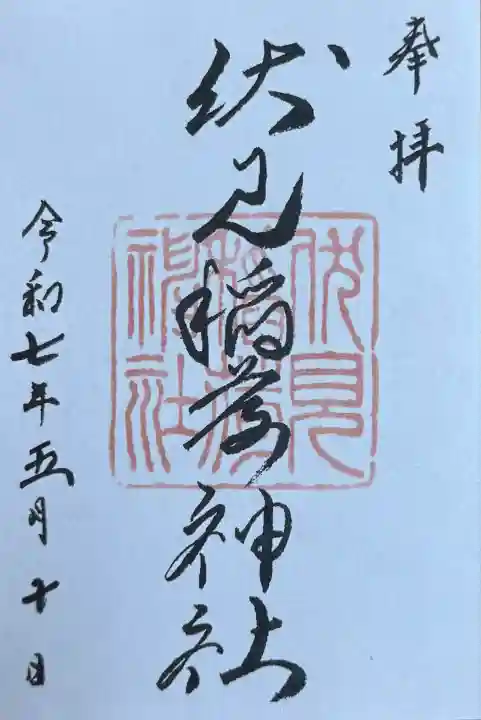 奉拝
伏見稲荷神社
伏見稲荷神社
令和七年五月十日